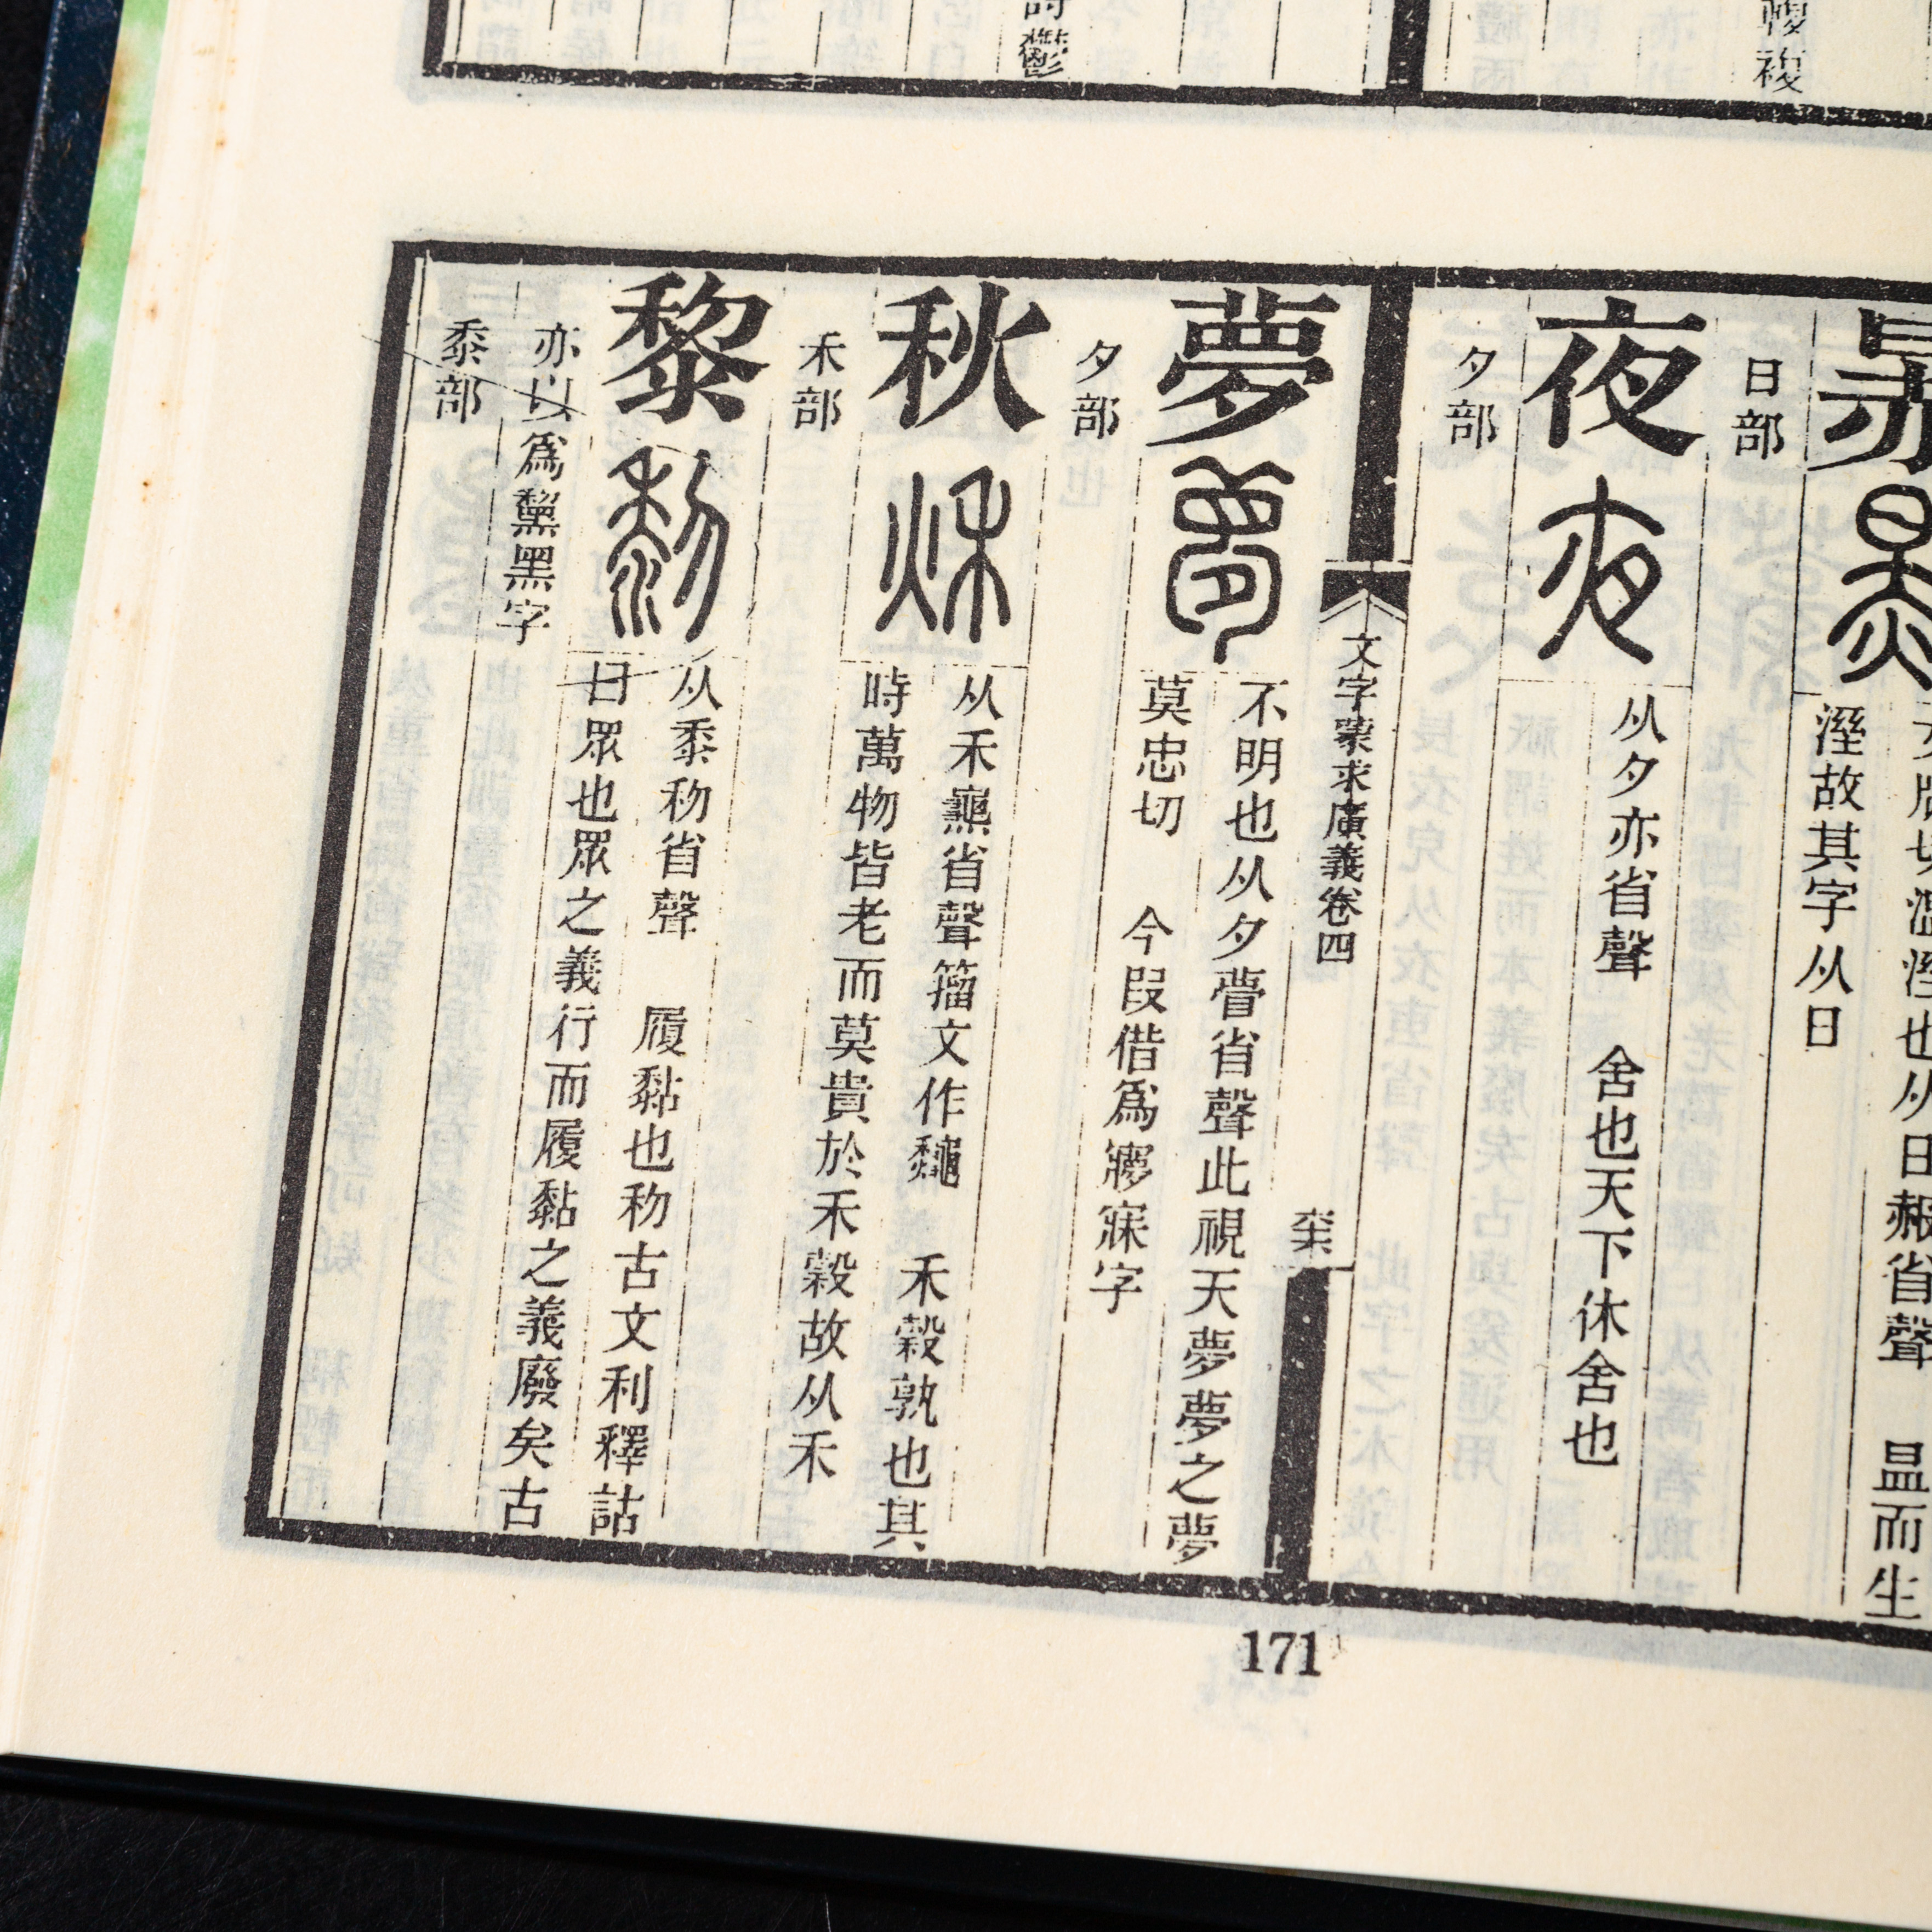 複
鬱
日部
溼故其字从日
夜
从夕亦省聲 舍也天下休舍也
夕部
文字蒙求廣義卷四
夢
不明也从夕瞢省聲此視天夢夢之夢
莫忠切 今叚借爲㝱寐字
夕部
秋
从禾𤒅省聲籀文作𪛁 禾穀孰也其
時萬物皆老而莫貴於禾穀故从禾
禾部
黎
从黍㓞省聲 履黏也㓞古文利釋詁
曰眾也眾之義行而履黏之義廢矣古
亦以爲黧黑字
黍部
171